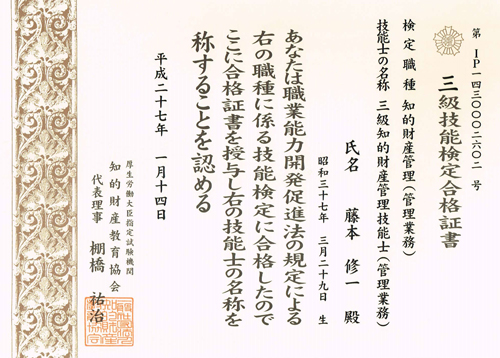 第 IP一四三〇〇〇二六〇二 号
三級技能検定合格証書
検定職種 知的財産管理(管理業務)
技能士の名称 三級知的財産管理技能士(管理業務)
氏名 藤本 修一 殿
昭和三十七年 三月二十九日 生
あなたは職業能力開発促進法の規定による
右の職種に係る技能検定に合格したので
ここに合格証書を授与し右の技能士の名称を
称することを認める
平成二十七年 一月十四日
厚生労働大臣指定試験機関
知的財産教育協会
代表理事 棚橋 祐治